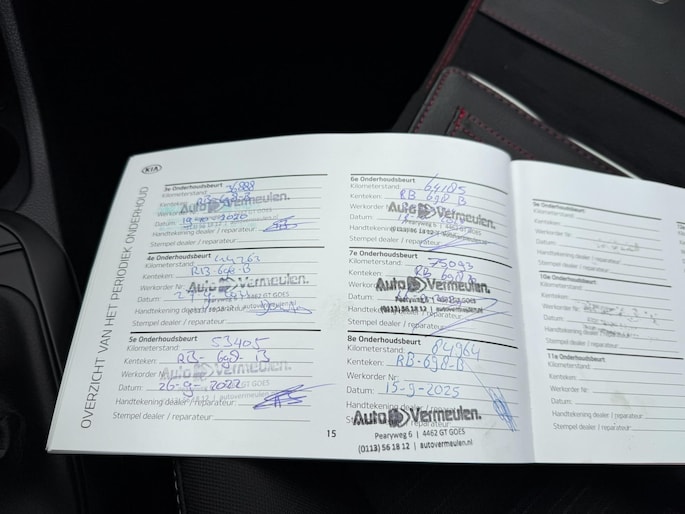 KIA
OVERZICHT VAN HET PERIODIEK ONDERHOUD
3e Onderhoudsbeurt
Kilometerstand:
Kenteken: RB-698-B
Werkorder Nr
Auto Vermeulen.
Datum:
Handtekening dealer / reparateur:
Stempel dealer / reparateur:
4e Onderhoudsbeurt
Kilometerstand: 44263
Kenteken: RB-698-B
Werkorder Nr
Auto Vermeulen.
Datum:
4462 GT GOES
Handtekening dealer / reparateur:
Stempel dealer / reparateur:
5e Onderhoudsbeurt
Kilometerstand: 53405
Kenteken: RB-698-B
Werkorder Nr
Auto Vermeulen.
Datum: 26-9-2022
Handtekening dealer / reparateur:
Stempel dealer / reparateur:
6e Onderhoudsbeurt
Kilometerstand: 64185
Kenteken: RB 698 B
Werkorder
Auto Vermeulen.
Datum:
(0113) 56 18 12
Stempel dealer / reparateur:
7e Onderhoudsbeurt
Kilometerstand: 75093
Kenteken: RB 698 B
Auto Vermeulen.
Datum:
(0113) 56 18 12
Stempel dealer / reparateur:
8e Onderhoudsbeurt
Kilometerstand: 84964
Kenteken: RB-698-B
Werkorder Nr
Datum: 15-9-2025
Handtekening dealer / reparateur:
Stempel dealer / reparateur:
Auto Vermeulen.
Pearyweg 6 | 4462 GT GOES
(0113) 56 18 12 | autovermeulen.nl
15
9e Onderhoudsbeurt
Kilometerstand:
Kenteken:
Werkorder Nr
Datum:
Handtekening
Stempel dealer /
10e Onderhoudsbeurt
Kilometerstand:
Kenteken:
Werkorder Nr
Datum:
Handtekening
Stempel dealer / reparateur:
11e Onderhoudsbeurt
Kilometerstand:
Kenteken:
Werkorder Nr:
Datum:
Handtekening dealer / reparateur:
Stempel dealer / reparateur: